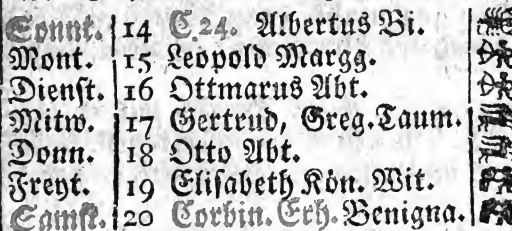 Sonnt. 14 C. 24. Albertus Bi.
Mont. 15 Leopold Margg.
Dienst. 16 Ottmarus Abt.
Mitw. 17 Gertrud, Greg. Taum.
Donn. 18 Otto Abt.
Freyt. 19 Elisabeth Kön. Wit.
Samst. 20 Corbin. Erh. Benigna.